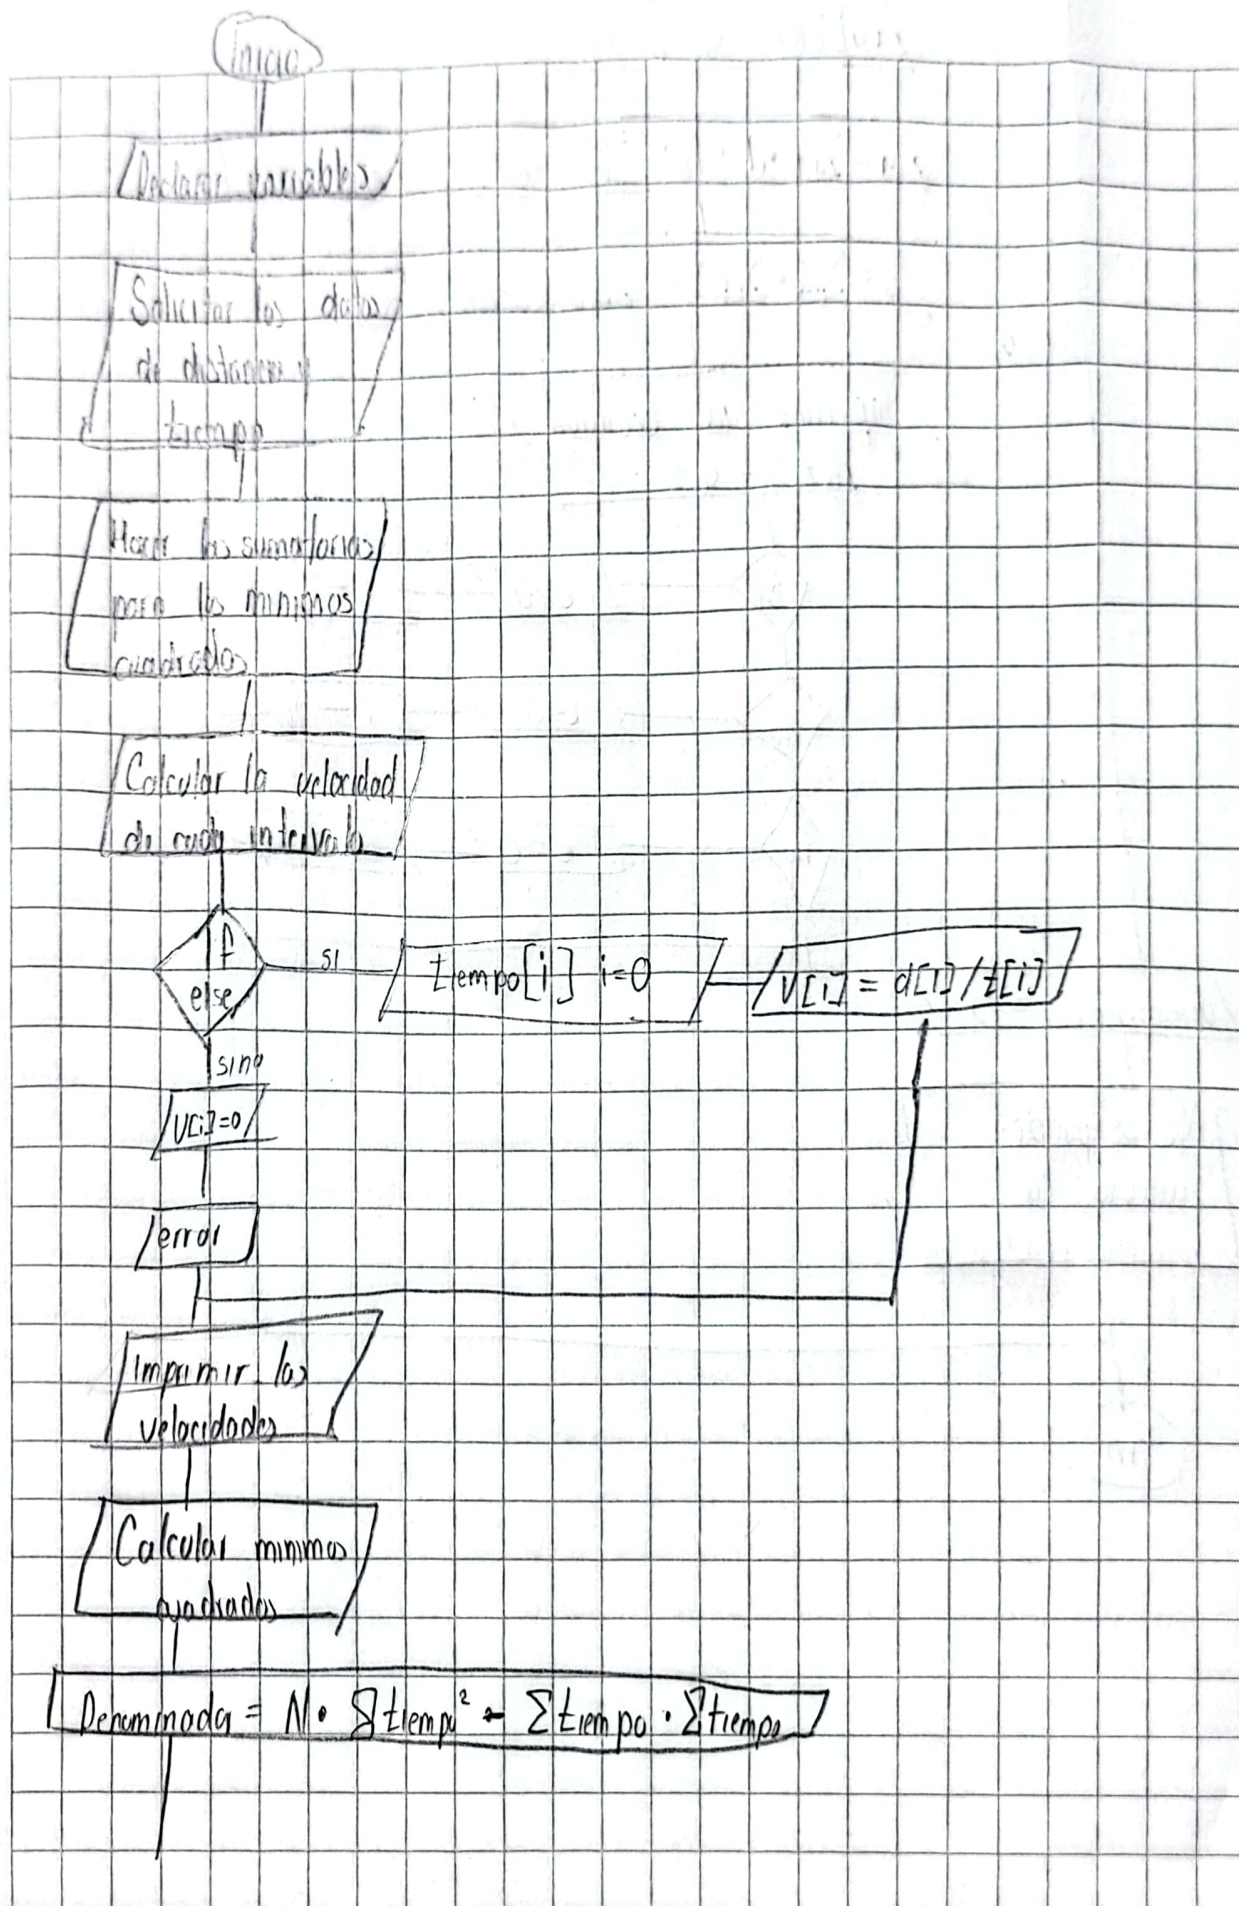 Inicio
Declarar variables
Solicitar los datos
de distancia y
tiempo
Hacer las sumatorias
para los minimos
cuadrados
Calcular la velocidad
de cada intervalo
if
else
si
tiempo[i] i=0
V[i] = d[i]/t[i]
sino
V[i]=0
error
Imprimir las
velocidades
Calcular minimos
cuadrados
Denominada = N• ∑tiempo² - ∑tiempo • ∑tiempo